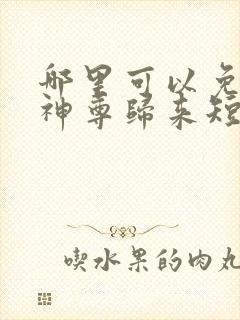 哪里可以免
神尊歸来短
喫水果的肉丸